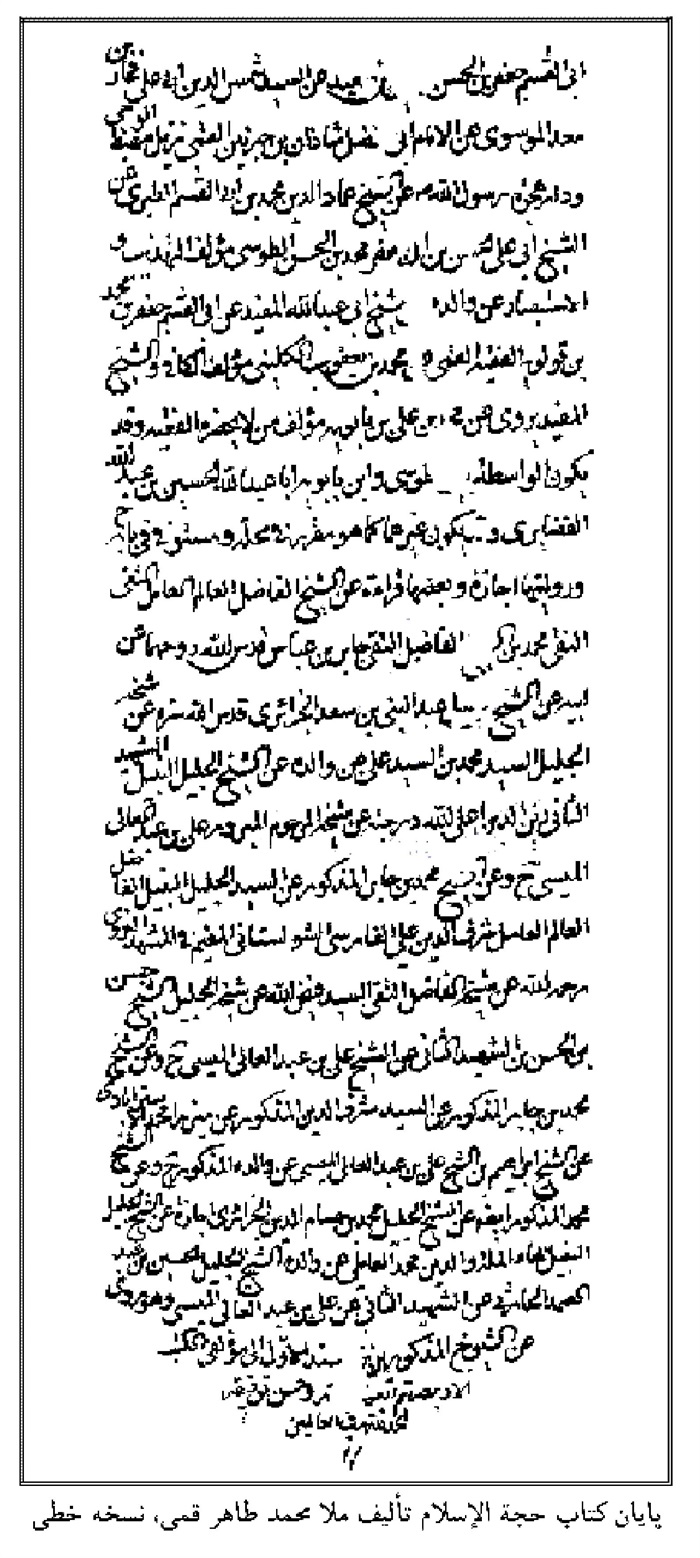 ابی القسم جعفر بن الحسن بن سعید عن السید شمس الدین ابی علی فخار بن
معد الموسوی عن الامام ابی فضل شاذان بن جبرئیل القمی نزیل مهبط
ودار هجرة رسول الله عن الشیخ عماد الدین محمد بن ابی القسم الطبری عن
الشیخ ابی علی الحسن بن ابی جعفر محمد بن الحسن الطوسی مؤلف التهذیب و
الاستبصار عن والده الشیخ ابی عبدالله المفید عن ابی القسم جعفر بن محمد
بن قولویه الفقیه القمی محمد بن یعقوب الکلینی مؤلف الکافی والشیخ
المفید یروی عن محمد بن علی بن بابویه مؤلف من لا یحضره الفقیه وقد
یکون الواسطة الطوسی وابن بابویه ابا عبدالله الحسین بن عبید الله
الغضایری و یکون غیرهما کما هو مقرر فی محله و
وروایتها اجازة وبعضها قراءة عن الشیخ الفاضل العالم العامل التقی
النقی محمد بن الفاضل التقی جابر بن عباس قدس الله روحهما عن
ابیه عن الشیخ عبد النبی بن سعد الجزائری قدس الله سره عن شیخه
الجلیل السید محمد بن السید علی عن والده عن الشیخ الجلیل النبیل الشهید
الثانی زین الدین اعلی الله درجته عن شیخه المرحوم المبرور علی بن عبد العالی
المیسی ح وعن الشیخ محمد بن جابر المذکور عن السید الجلیل النبیل الفاضل
العالم العامل شرف الدین علی الشولستانی المقیم فی المشهد الغروی
رحمه الله عن شیخه الفاضل التقی السید فیض الله عن شیخه الجلیل الشیخ حسن
بن الحسن بن الشهید الثانی عن الشیخ علی بن عبد العالی المیسی ح وعن الشیخ
محمد بن جابر المذکور عن السید شرف الدین المذکور عن میرزا محمد الاسترابادی
عن الشیخ ابراهیم بن الشیخ علی بن عبد العالی المیسی عن والده المذکور ح وعن الشیخ
محمد المذکور ایضا عن الشیخ الجلیل محمد بن حسام الدین الجزائری اجازة عن الشیخ الجلیل
النبیل بهاء الملة والدین محمد العاملی عن والده الشیخ الجلیل الحسین بن عبد
الصمد الحارثی عن الشهید الثانی عن علی بن عبد العالی المیسی وهو یروی
عن الشیوخ المذکورین الی مؤلفی الکتب
الاربعة

پایان کتاب حجة الإسلام تألیف ملا محمد طاهر قمی، نسخه خطی